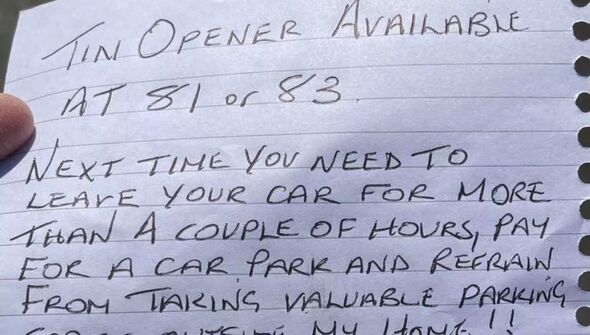 TIN OPENER AVAILABLE
AT 81 or 83.
NEXT TIME YOU NEED TO
LEAVE YOUR CAR FOR MORE
THAN A COUPLE OF HOURS, PAY
FOR A CAR PARK AND REFRAIN
FROM TAKING VALUABLE PARKING
OUTSIDE MY HOME!!